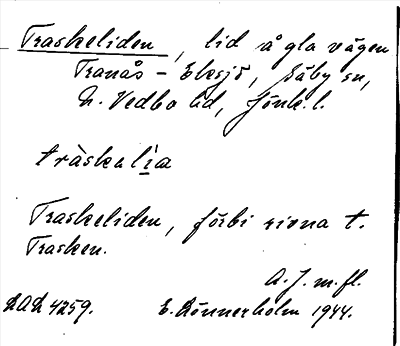 Traskeliden, lid å gla vägen
Tranås – Eksjö, Säby sn,
N. Vedbo hd, Jönk. l.
tràskalìa
Traskeliden, förbi t.
Trasken.
A. J. m. fl.
4259. E. Rönnerholm 1944.